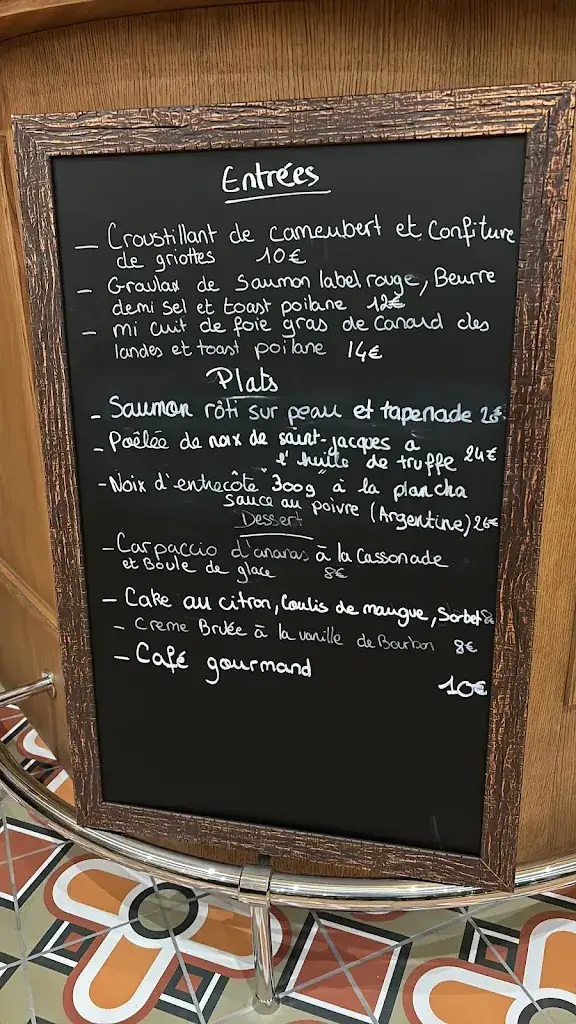 Entrées
- Croustillant de camenbert et Confiture
de griottes 10€
- Gravlax de Saumon label rouge, Beurre
demi sel et toast poilane 12€
- mi cuit de foie gras de Canard des
landes et toast poilane 14€
Plats
- Saumon rôti sur peau et tapenade
- Poêlée de noix de saint-jacques à
l'huile de truffe 24€
- Noix d'entrecôte "300g" à la plancha
sauce au poivre (Argentine) 26€
Dessert
- Carpaccio d'ananas à la Cassonade
et Boule de glace 8€
- Cake au citron, Coulis de mangue, Sorbet
- Creme Brulée à la vanille de Bourbon 8€
- Café gourmand
10€